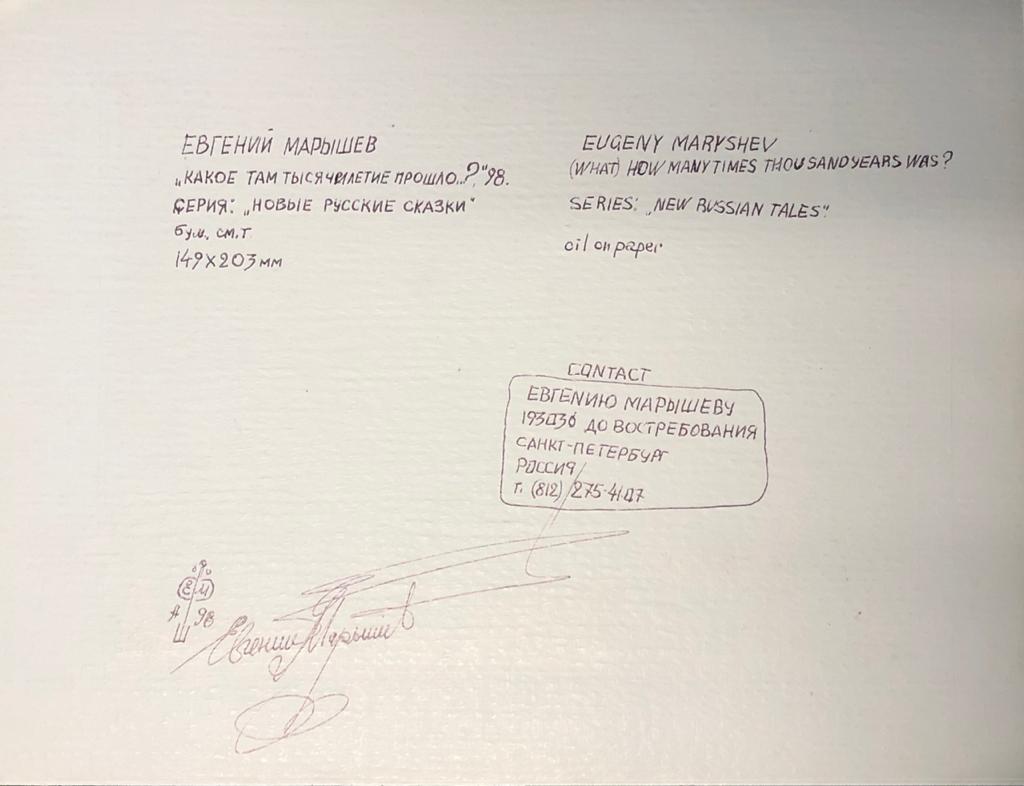 ЕВГЕНИЙ МАРЫШЕВ
„КАКОЕ ТАМ ТЫСЯЧЕЛЕТИЕ ПРОШЛО...?" 98.
СЕРИЯ: „НОВЫЕ РУССКИЕ СКАЗКИ"
бум., см.т
149Х203 мм
EUGENY MARYSHEV
(WHAT) HOW MANY TIMES THOUSAND YEARS WAS?
SERIES: „NEW RUSSIAN TALES".
oil on paper
CONTACT
ЕВГЕНИЮ МАРЫШЕВУ
193036 ДО ВОСТРЕБОВАНИЯ
САНКТ-ПЕТЕРБУРГ
РОССИЯ
т. (812) 275-4107
ЕМ
А 98
Ш
Евгений Марышев